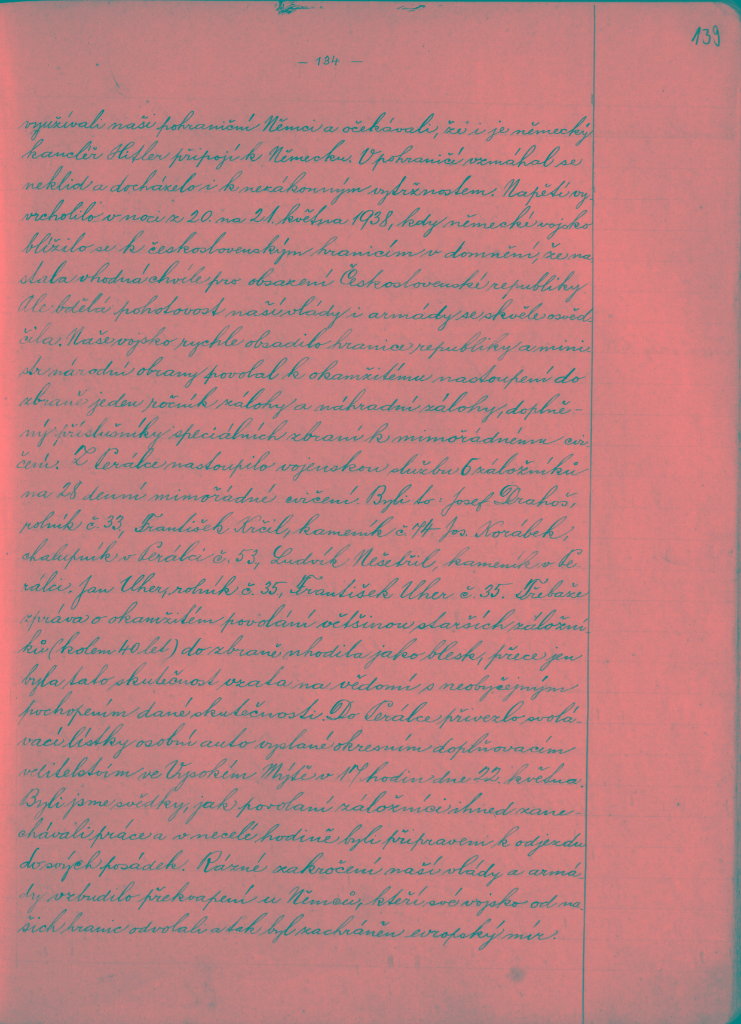 139
— 184 —
využívali naši pohraniční Němci a očekávali, že i je německý
kancléř Hitler připojí k Německu. V pohraničí vzmáhal se
neklid a docházelo i k nezákonným výtržnostem. Napětí vy-
vrcholilo v noci z 20. na 21. května 1938, kdy německé vojsko
blížilo se k československým hranicím v domnění, že na
stala vhodná chvíle pro obsazení Československé republiky
Ale bdělá pohotovost naší vlády i armády se skvěle osvěd
čila. Naše vojsko rychle obsadilo hranice republiky a mini
str národní obrany povolal k okamžitému nastoupení do
zbraně jeden ročník zálohy a náhradní zálohy, doplně-
ný příslušníky speciálních zbraní k mimořádnému cvi
čení. Z Perálce nastoupilo vojenskou službu 6 záložníků
na 28 denní mimořádné cvičení. Byli to: Josef Drahoš,
rolník č. 33, František Krčil, kameník č 74 Jos. Korábek,
chalupník v Perálci č. 53, Ludvík Nešetřil, kameník v Pe
rálci, Jan Uher, rolník č. 35, František Uher č. 35. Třebaže
zpráva o okamžitém povolání většinou starších záložní
ků (kolem 40 let) do zbraně uhodila jako blesk, přece jen
byla tato skutečnost vzata na vědomí s neobyčejným
pochopením dané skutečnosti. Do Perálce přivezlo svolá-
vací lístky osobní auto vyslané okresním doplňovacím
velitelstvím ve Vysokém Mýtě v 17 hodin dne 22. května.
Byli jsme svědky, jak povolaní záložníci ihned zane-
chávali práce a v necelé hodině byli připraveni k odjezdu
do svých posádek. Rázné zakročení naší vlády a armá
dy vzbudilo překvapení u Němců, kteří své vojsko od na
šich hranic odvolali a tak byl zachráněn evropský mír.